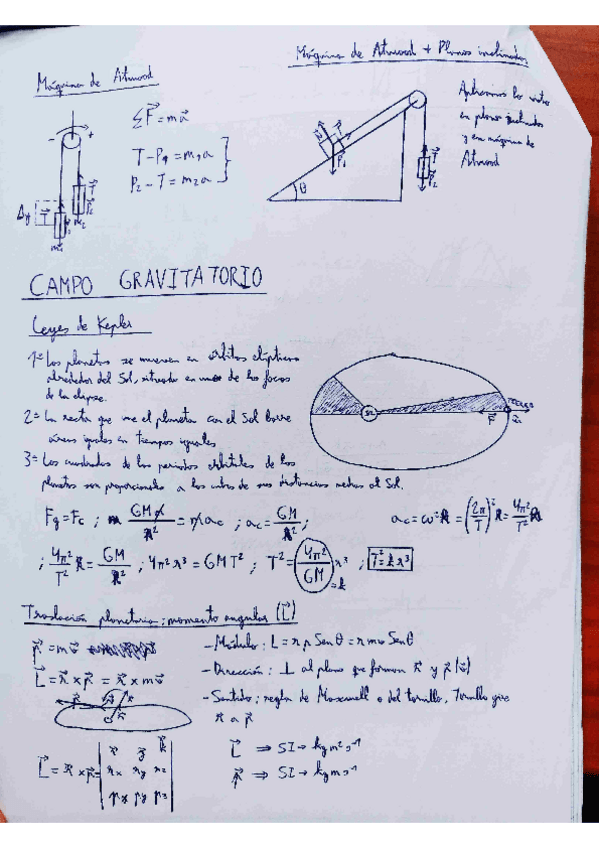 Máquina de Atwood
ΣF⃗=ma⃗
T-P₁=m₁a
P₂-T=m₂a
- +
Δy
T
P₁
m₁
T
P₂
m₂
Máquina de Atwood + Planos inclinados
Aplicamos lo visto
en planos inclinados
y en máquina de
Atwood
N
T
P₁
θ
T
P₂
CAMPO GRAVITATORIO
Leyes de Kepler
1ª= Los planetas se mueven en órbitas elípticas
alrededor del Sol, situado en uno de los focos
de la elipse.
2ª= La recta que une el planeta con el Sol barre
áreas iguales en tiempos iguales
3ª= Los cuadrados de los periodos orbitales de los
planetas son proporcionales a los cubos de sus distancias medias al Sol.
SOL
Fg=Fc ; GMm/r² = m ac ; ac = GM/r² ; ac = ω²R = (2π/T)² R = 4π²/T² R
; 4π²/T² R = GM/R² ; 4π² r³ = GMT² ; T² = 4π²/GM r³ ; T²=k r³
=k
Traslación planetaria: momento angular (L⃗)
p⃗ = mv⃗
L⃗ = r⃗ x p⃗ = r⃗ x mv⃗
- Módulo: L = r p Senθ = r mv Senθ
- Dirección: ⊥ al plano que forman r⃗ y p⃗ (v⃗)
- Sentido: regla de Maxwell o del tornillo, Tornillo gire
r⃗ a p⃗
L⃗ = r⃗ x p⃗ =
x⃗ y⃗ k⃗
rx ry rz
px py pz
L⃗ ⇒ SI → kgm²s⁻¹
p⃗ ⇒ SI → kgms⁻¹